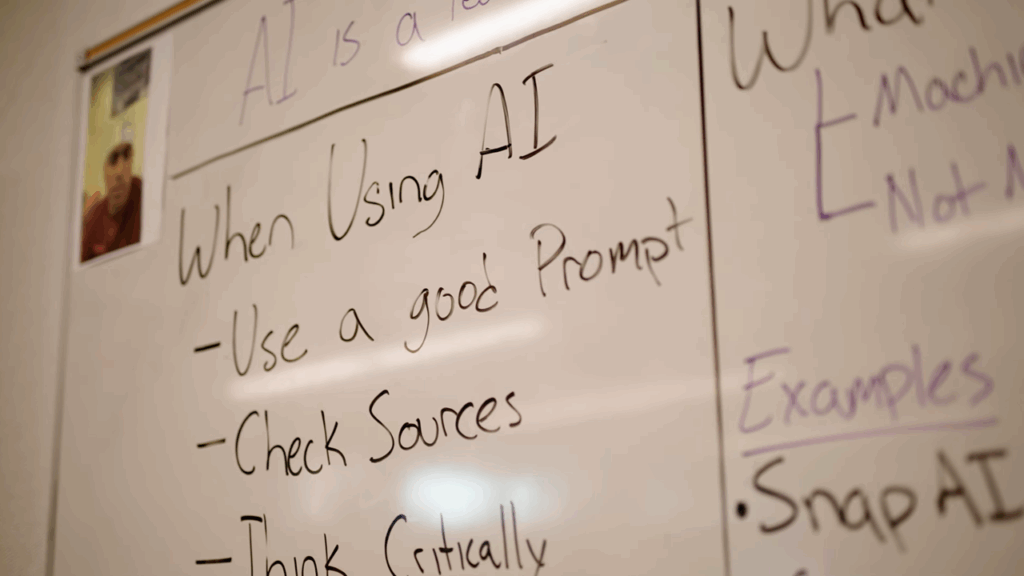 AI is a
When Using AI
- Use a good Prompt
- Check Sources
- Think Critically
Machi
Not
Examples
• Snap AI